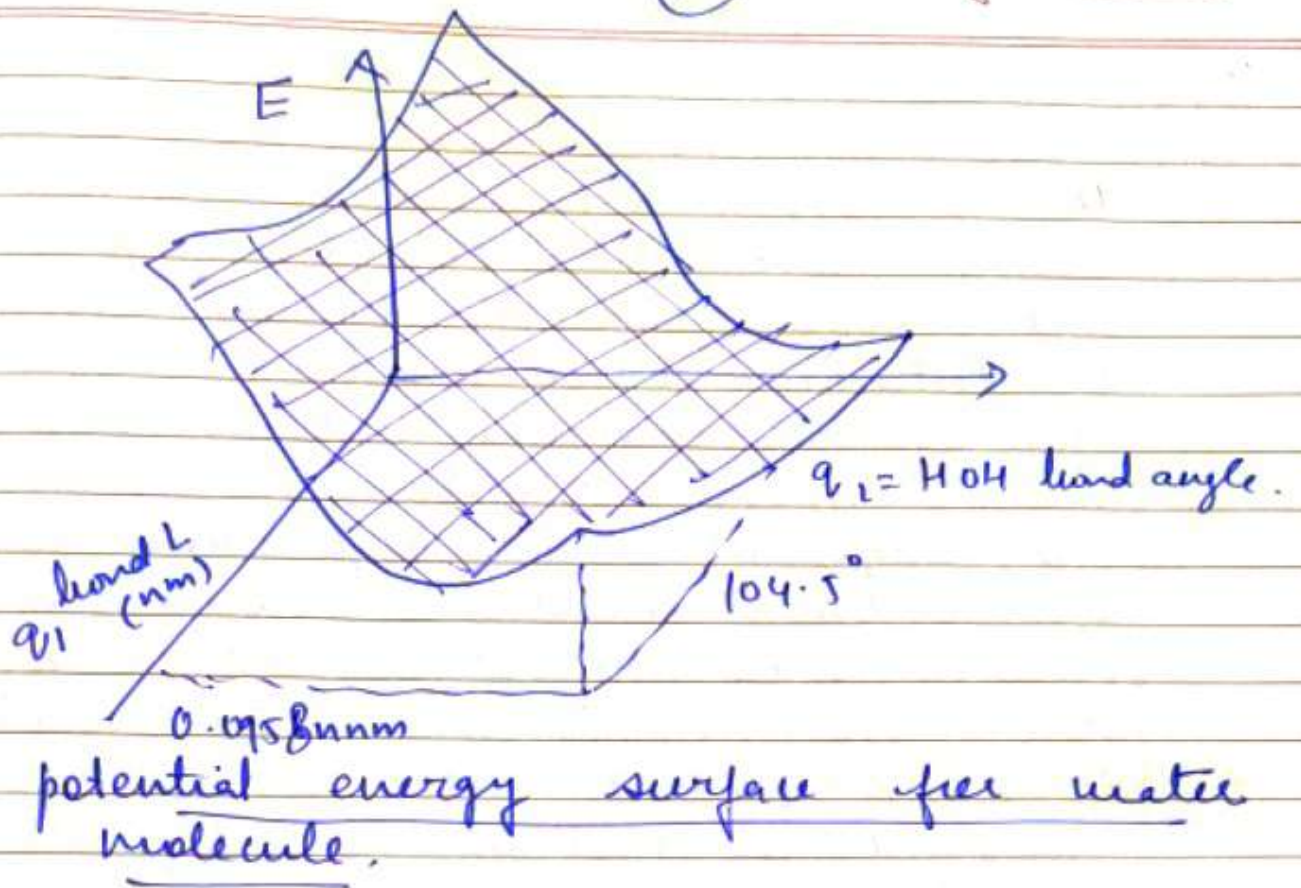 E
q₂ = HOH bond angle.
bond L
(nm)
q1
104.5°
0.0958nnm
potential energy surface for water
molecule.